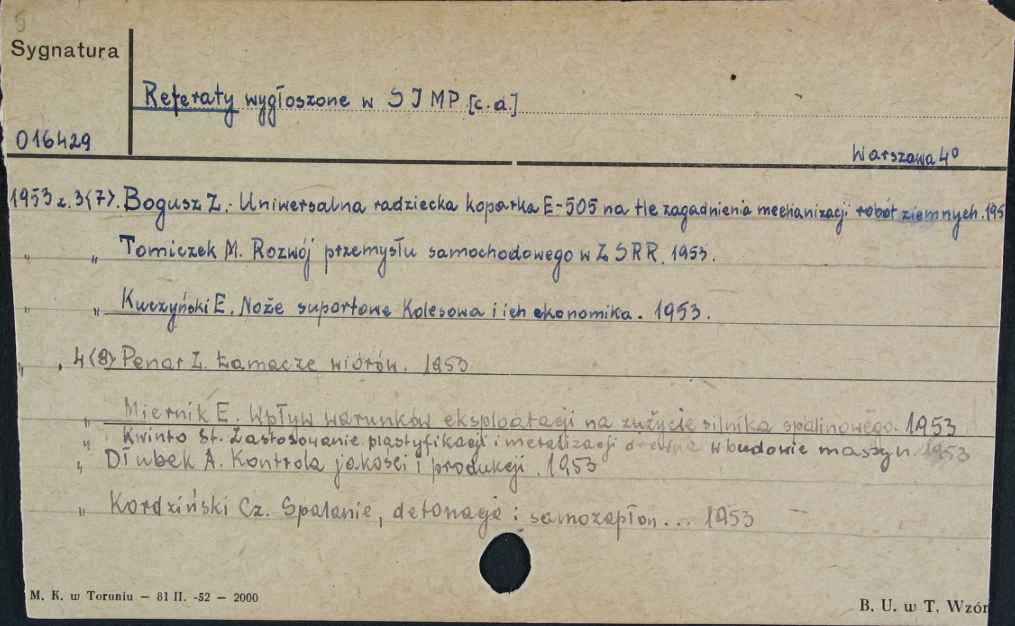 5
Sygnatura
Referaty wygłoszone w SIMP [c.d.]
016429
Warszawa 4°
1953 z. 3(7). Bogusz Z. - Uniwersalna radziecka koparka E-505 na tle zagadnienia mechanizacji robót ziemnych. 195
" " Tomiczek M. Rozwój przemysłu samochodowego w ZSRR. 1953.
" " Kuczyński E. Noże suportowe Kolesowa i ich ekonomika. 1953.
" , 4(8) Penar Z. Łamacze wiórów. 1953
" Miernik E. Wpływ warunków eksploatacji na zużycie silnika spalinowego. 1953
" Kwinto St. Zastosowanie plastyfikacji i metalizacji drewna w budowie maszyn. 1953
" Dłubek A. Kontrola jakości i produkcji. 1953
" Kordziński Cz. Spalanie, detonacja i samozapłon... 1953
M. K. w Toruniu — 81 II. -52 — 2000
B. U. w T. Wzór